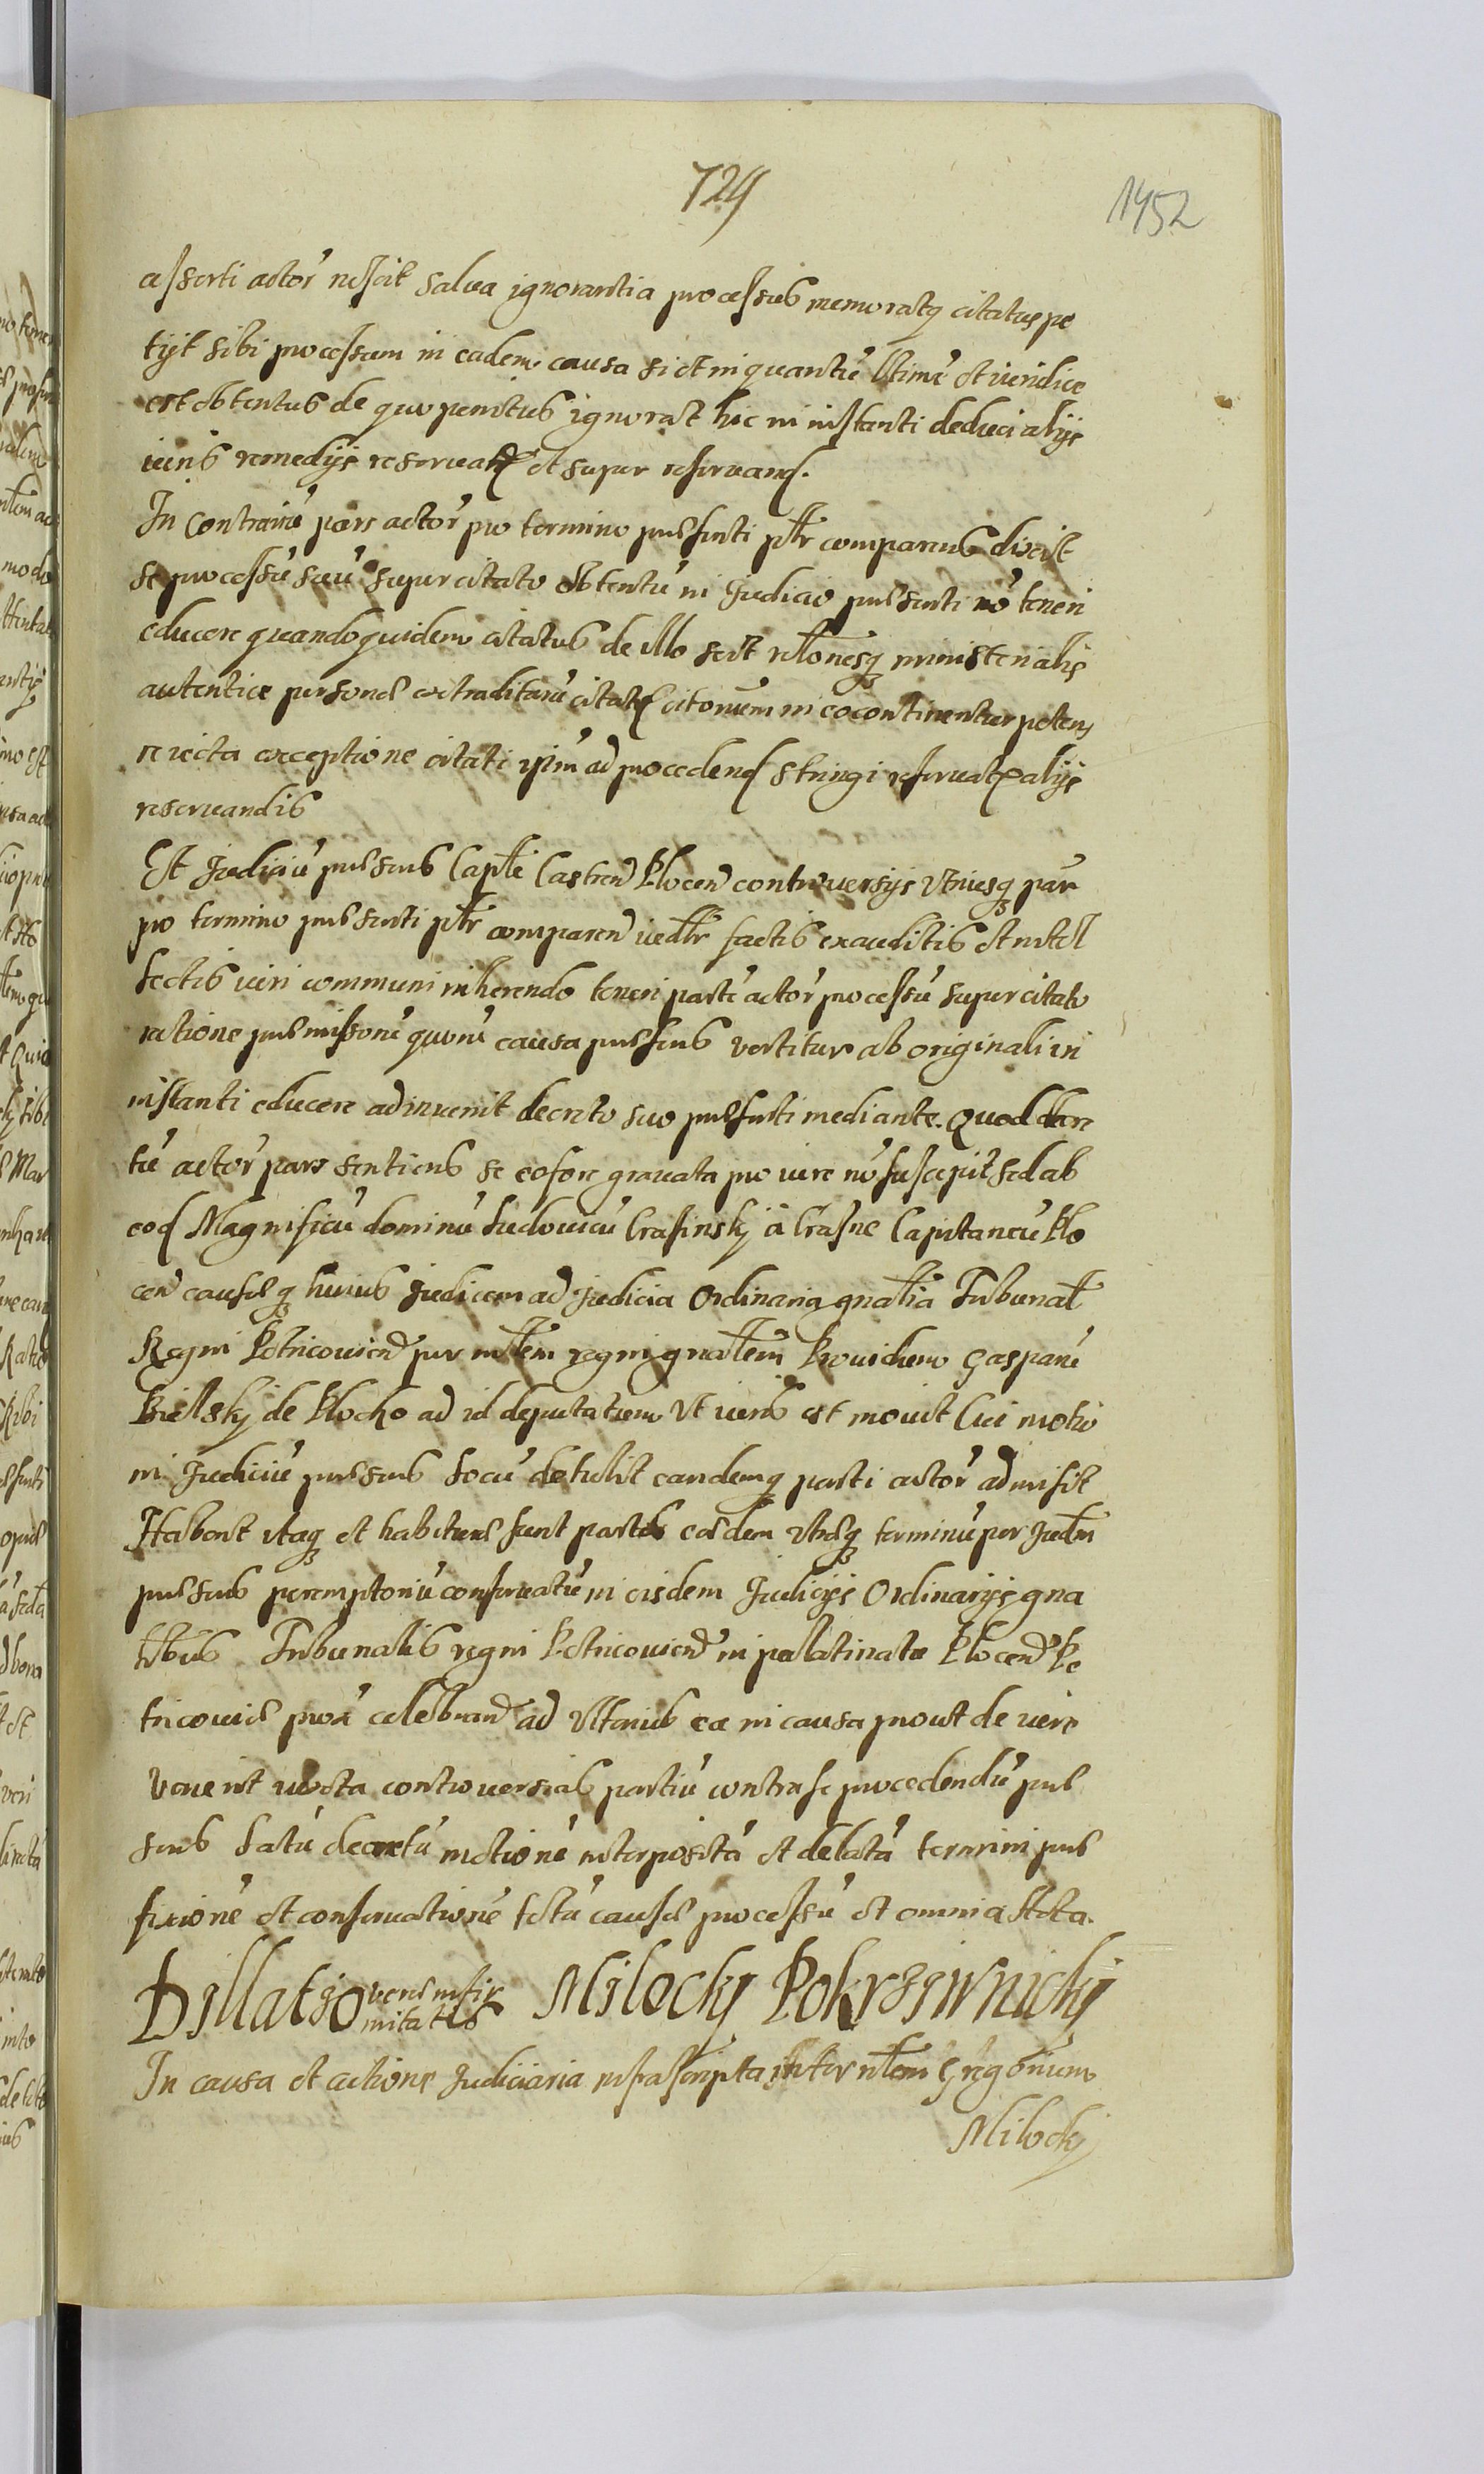 729
1452
asserti actor nescit salua ignorantia processus memoratq citatus pe
tijt sibi processum in eadem causa si et in quantū ltime et iuridice
est obtentus de quo penitus ignorat hic in instanti deduci alijs
iuris remedijs reseruat et super reseruand.
In Contrariū pars actor pro termino presenti ptr comparens dixit
se processū suū super citato obtentū in Judicio presenti nō teneri
educere quandoquidem citatus de illo scit rltonesq ministerialis
autentice persone extraditarū citat citonum in eo continentur petens
reiecta exceptione citati ipsum ad procedend stringi reseruat alijs
reseruandis
Et Judiciū presens Capttle Castren Plocen controuersijs vtriusq par
pro termino presenti ptr comparen iudltr factis exauditis et intel
lectis iuri communi inherendo teneri partē actor processū super citato
ratione premissorū quorū causa presens vertitur ab originali in
instanti educere adinuenit decreto suo presenti mediante. Quod decre
tū actor pars sentiens se eo fore grauata pro iure nō suscepit sed ab
eod Magnificū dominū Ludouicū Crasinsky à Crasne Capitaneū Plo
cen causeq huius Judicem ad Judicia Ordinaria gnalia Tribunal
Regni Petricouien per mltem regni gnalem Prouidum Gasparū
Bielsky de Plocko ad id deputatum vt iuris est mouit Cui motio
ni Judiciū presens locū detulit eandemq parti actor admisit
Habent itaq et habiture sunt partes eedem vtreq terminū per Judm
presens peremptoriū conseruatū in eisdem Judicijs Ordinarijs gna
libus Tribunalis regni Petricouien in palatinatu Plocen Pe
tricouie prox celebrand ad vlterius ea in causa prout de iure
venerit iuxta controuersias partiū contra se procedendū pre
sens latū decretū motionē interpositā et delatā termini pre
fixionē et conseruationē totū cause processū et omnia acta.
Dillatio vere infir
mitatis Milocky Pokrziwnicky
In causa et actione Judiciaria infrascripta inter nlem Gregorium
Milocky